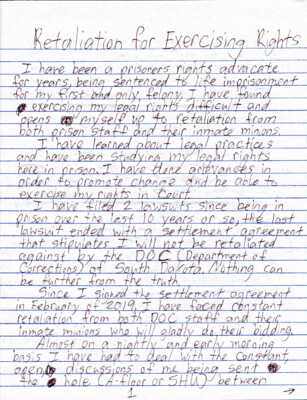 Retaliation for Exercising Rights
I have been a prisoners rights advocate
for years, being sentenced to life imprisonment
for my first and only felony, I have found
exercising my legal rights difficult and
opens myself up to retaliation from
both prison staff and their inmate minions.
I have learned about legal practices
and have been studying my legal rights
here in prison. I have done grievances in
order to promote change and be able to
exercise my rights in Court.
I have filed 2 lawsuits since being in
prison over the last 10 years or so, the last
lawsuit ended with a settlement agreement
that stipulates I will not be retaliated
against by the DOC (Department of
Corrections) of South Dakota. Nothing can
be further from the truth.
Since I signed the settlement agreement
in February of 2019, I have faced constant
retaliation from both DOC staff and their
inmate minions who will gladly do their bidding.
Almost on a nightly and early morning
basis I have had to deal with the constant,
open discussions of me being sent
the hole (A-floor or SHU) between
1 →